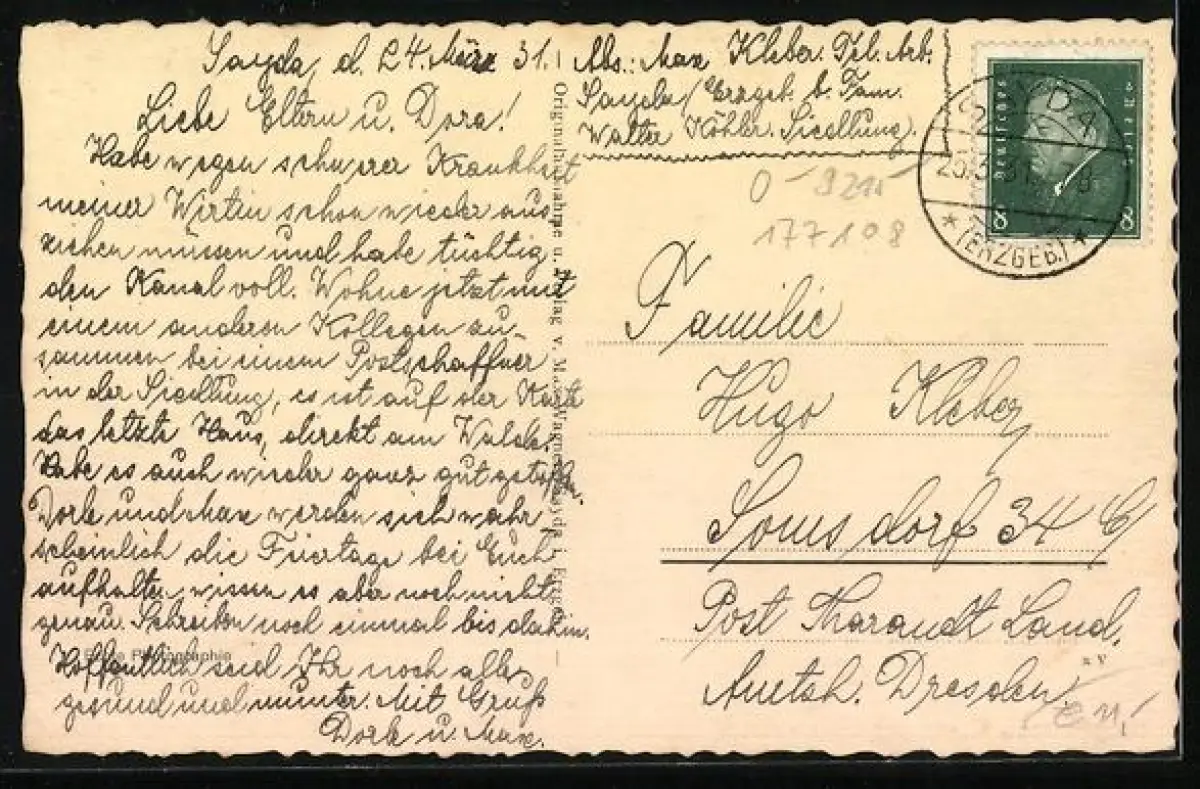 Sayda, d. 24. März 31.
Liebe Eltern u. Dora!
Habe wegen schwerer Krankheit
meiner Wirtin schon wieder aus-
ziehen müssen und habe tüchtig
den Kanal voll. Wohne jetzt mit
einem anderen Kollegen zu-
sammen bei einem Postschaffner
in der Siedlung, es ist auf der Karte
das letzte Haus, direkt am Walde.
Habe es auch wieder ganz gut getroffen.
Dorle und Max werden sich wahr
scheinlich die Feiertage bei Euch
aufhalten, wissen es aber noch nicht
genau. Schreiben noch einmal bis dahin.
Hoffentlich seid Ihr noch alle
gesund und munter. Mit Gruß
Dorle u. Max.
Echte Photographie
Originalaufnahme u. Verlag v. M. Wagner, Sayda i. Erzg.
Abs.: Max Kleber. Tel. Arb.
Sayda/Erzgeb. b. Fam.
Walter Köhler. Siedlung.
0-9215
177108
SAYDA
25.3.31. 7-8
* (ERZGEB.) *
Deutsches Reich
8 8
Familie
Hugo Kleber
Somsdorf 34 C
Post Tharandt Land,
Amtsh. Dresden.
€ 11,-